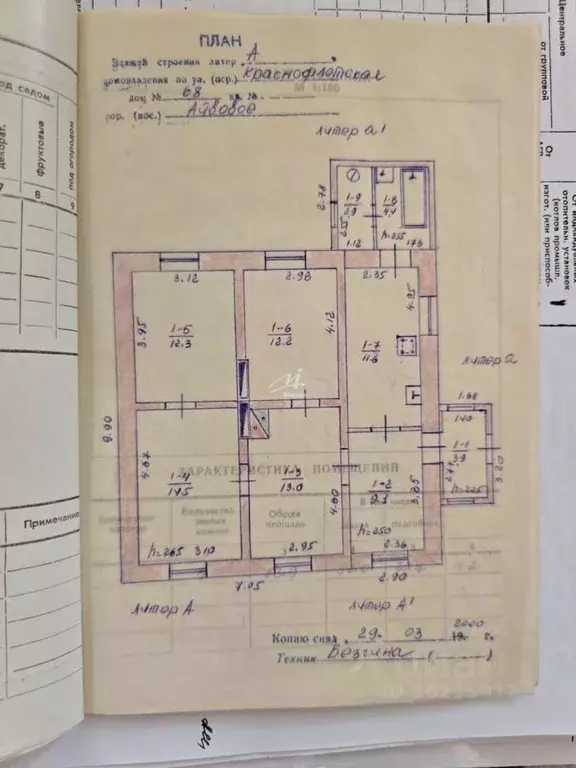 ПЛАН
литер А
домовладения по ул. (пер.) Краснофлотская
дом № 68 кв. №
М 1:100
гор. (пос.) Айдовое
литер а1
2.78
1-9
2.9
1-8
4.4
2.55
1.12
h=2.55
1.73
3.12
2.93
2.35
3.95
1-5
12.3
1-6
12.2
4.12
1-7
11.6
4.95
литер а
1.68
1.40
1-1
3.9
2.77
3.20
h=2.25
9.90
4.67
1-4
14.5
ХАРАКТЕРИСТИКА ПОМЕЩЕНИЙ
1-3
13.0
4.60
1-2
9.1
3.85
Общая
площадь
h=2.65
3.10
2.95
h=2.50
2.36
7.05
2.90
литер А
литер А1
Копию снял 29. 03 2000 г.
Техник Безгина
од садом
декорат.
фруктовые
под огородом
7
8
9
Примечание
Центральное
от групповой
От
отопительн. установок
(котлов промышл.
изгот. (или приспособ-